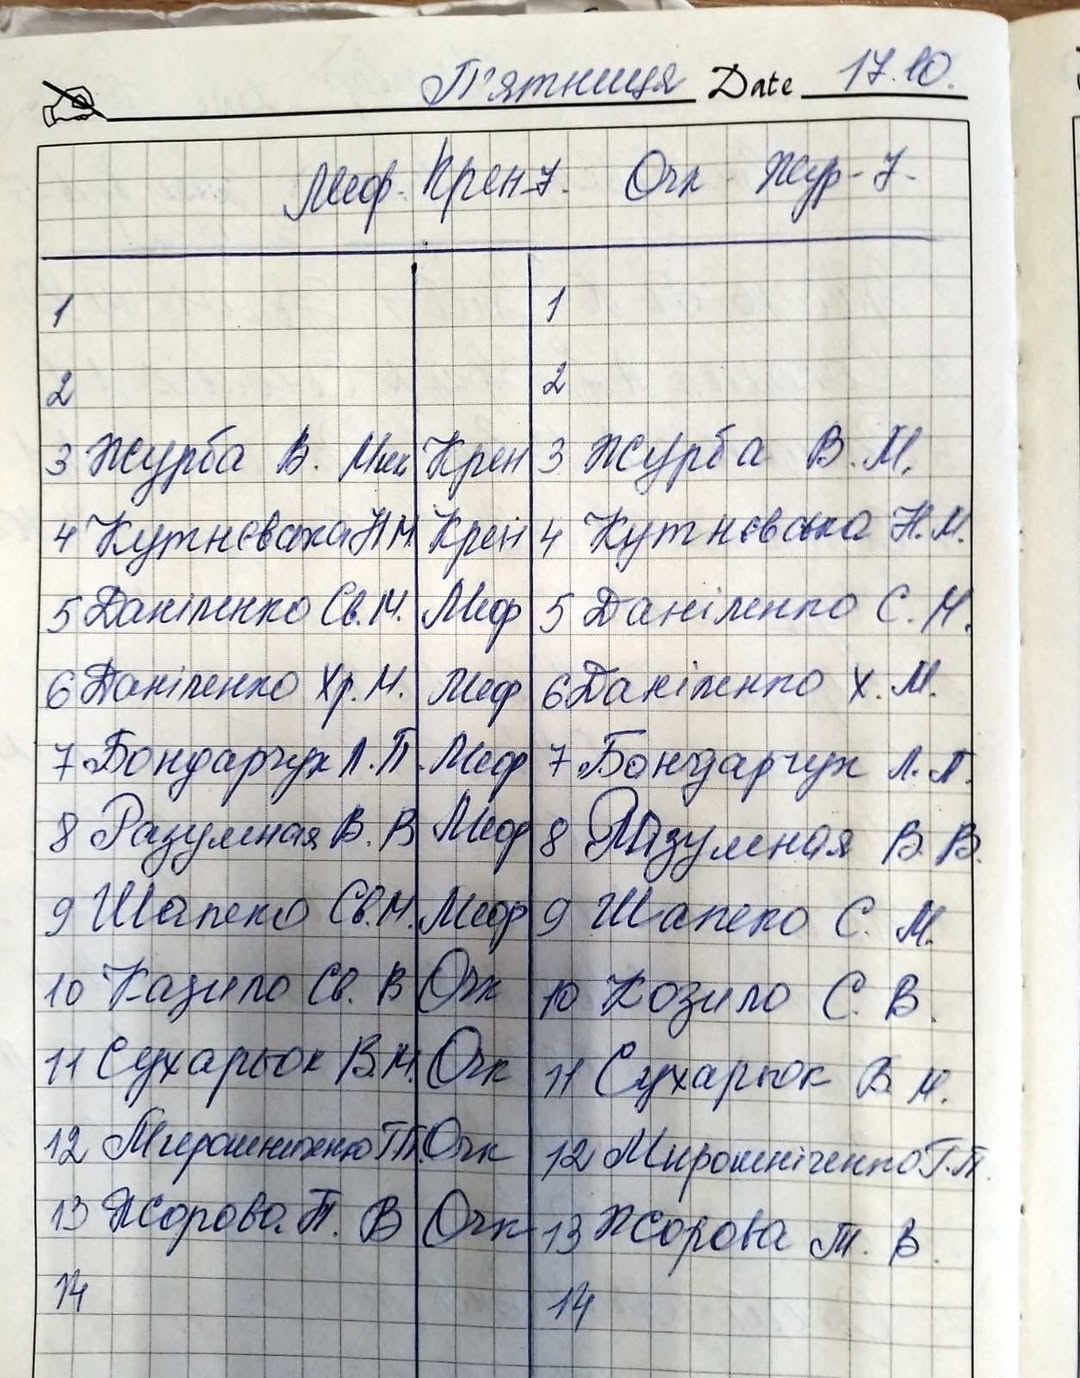 П'ятниця Date 17.10.
Меф. Крен-7. Очк Жур-7.
1 1
2 2
3 Журба В. Мик Крен 3 Журба В.М.
4 Кутнєваха Н М Крен 4 Кутнєваха Н.М.
5 Даніленко Св.М. Меф 5 Даніленко С.М.
6 Даніленко Хр.М. Меф 6 Даніленко Х.М.
7 Бондарчук Л.П. Меф 7 Бондарчук Л.П.
8 Разумная В.В Меф 8 Разумная В.В.
9 Шапеко Св.М. Меф 9 Шапеко С.М.
10 Казило Св. В Очк 10 Козило С.В.
11 Сухарьок В.М. Очк 11 Сухарьок В.М.
12 Мирошніченко Г.П. Очк 12 Мирошніченко Г.П.
13 Жорова Т. В Очк 13 Жорова Т.В.
14 14